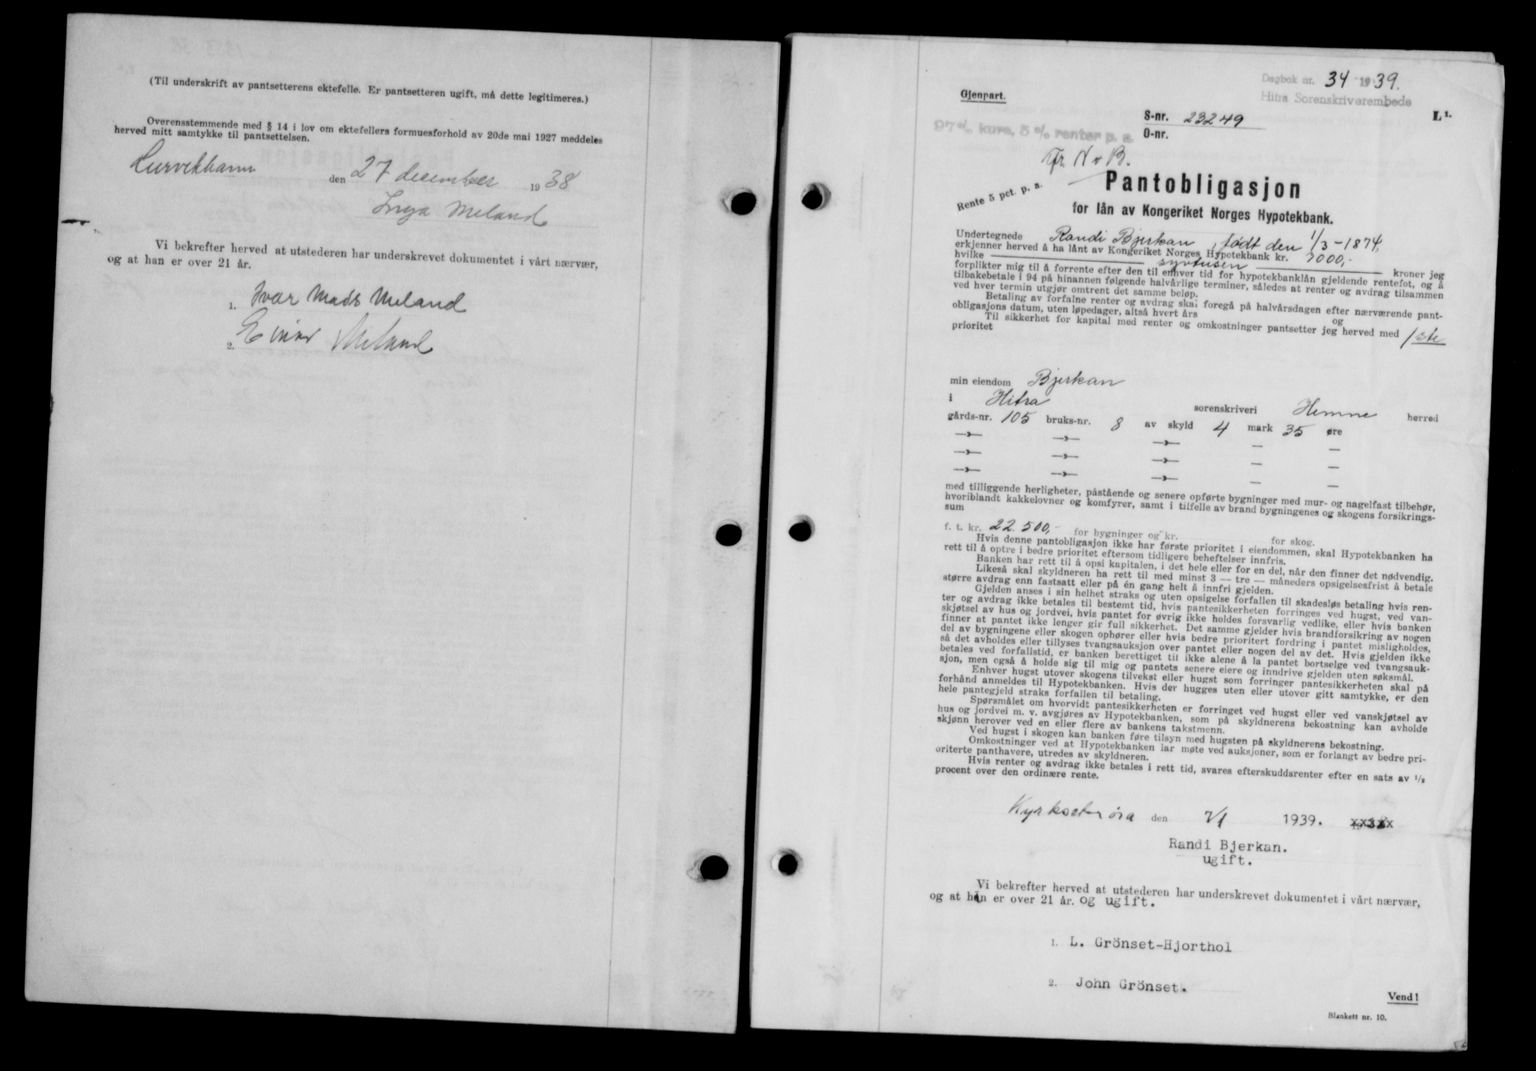 (Til underskrift av pantsetterens ektefelle. Er pantsetteren ugift, må dette legitimeres.)
Overensstemmende med § 14 i lov om ektefellers formuesforhold av 20de mai 1927 meddeles
herved mitt samtykke til pantsettelsen.
den 27 december 1938
Inga Meland
Vi bekrefter herved at utstederen har underskrevet dokumentet i vårt nærvær,
og at han er over 21 år.
1. Ivar Mads Meland
2. Einar Meland
Dagbok nr. 34 1939.
Hitra Sorenskriverembede
Gjenpart.
S-nr. 23249
L¹.
97 % kurs, 5 % renter p. a.
O-nr.
Rente 5 pct. p. a.
Pantobligasjon
for lån av Kongeriket Norges Hypotekbank.
Undertegnede Randi Bjerkan, født den 1/3-1874,
erkjenner herved å ha lånt av Kongeriket Norges Hypotekbank kr. 7000,-
hvilke syvtusen kroner jeg
forplikter mig til å forrente efter den til enhver tid for hypotekbanklån gjeldende rentefot, og å
tilbakebetale i 94 på hinannen følgende halvårlige terminer, således at renter og avdrag tilsammen
ved hver termin utgjør omtrent det samme beløp.
Betaling av forfalne renter og avdrag skal foregå på halvårsdagen efter nærværende pant-
obligasjons datum, uten løpedager, altså hvert års og
Til sikkerhet for kapital med renter og omkostninger pantsetter jeg herved med 1ste
prioritet
min eiendom Bjerkan
i Hitra sorenskriveri Hemne herred
gårds-nr. 105 bruks-nr. 8 av skyld 4 mark 35 øre
med tilliggende herligheter, påstående og senere opførte bygninger med mur- og nagelfast tilbehør,
hvoriblandt kakkelovner og komfyrer, samt i tilfelle av brand bygningenes og skogens forsikrings-
sum
f. t. kr. 22.500,- for bygninger og kr. for skog.
Hvis denne pantobligasjon ikke har første prioritet i eiendommen, skal Hypotekbanken ha
rett til å optre i bedre prioritet eftersom tidligere beheftelser innfris.
Banken har rett til å opsi kapitalen, i det hele eller for en del, når den finner det nødvendig.
Likeså skal skyldneren ha rett til med minst 3 — tre — måneders opsigelsesfrist å betale
større avdrag enn fastsatt eller på én gang helt å innfri gjelden.
Gjelden anses i sin helhet straks og uten opsigelse forfallen til skadesløs betaling hvis ren-
ter og avdrag ikke betales til bestemt tid, hvis pantesikkerheten forringes ved hugst, ved van-
skjøtsel av hus og jordvei, hvis pantet for øvrig ikke holdes forsvarlig vedlike, eller hvis banken
finner at pantet ikke lenger gir full sikkerhet. Det samme gjelder hvis brandforsikring av nogen
del av bygningene eller skogen ophører eller hvis bedre prioritert fordring i pantet misligholdes,
så det avholdes eller tillyses tvangsauksjon over pantet eller nogen del av det. Hvis gjelden ikke
betales ved forfallstid, er banken berettiget til ikke alene å la pantet bortselge ved tvangsauk-
sjon, men også å holde sig til mig og pantets senere eiere og inndrive gjelden uten søksmål.
Enhver hugst utover skogens tilvekst eller hugst som forringer pantesikkerheten skal på
forhånd anmeldes til Hypotekbanken. Hvis der hugges uten eller utover gitt samtykke, er den
hele pantegjeld straks forfallen til betaling.
Spørsmålet om hvorvidt pantesikkerheten er forringet ved hugst eller ved vanskjøtsel av
hus og jordvei m. v. avgjøres av Hypotekbanken, som på skyldnerens bekostning kan avholde
skjønn herover ved en eller flere av bankens takstmenn.
Ved hugst i skogen kan banken føre tilsyn med hugsten på skyldnerens bekostning.
Omkostninger ved at Hypotekbanken lar møte ved auksjoner, som er forlangt av bedre pri-
oriterte panthavere, utredes av skyldneren.
Hvis renter og avdrag ikke betales i rett tid, svares efterskuddsrenter efter en sats av ½
procent over den ordinære rente.
Kyrksæterøra den 7/1 1939.
Randi Bjerkan.
ugift.
Vi bekrefter herved at utstederen har underskrevet dokumentet i vårt nærvær,
og at hun er over 21 år. og ugift.
1. L. Grönset-Hjorthol
2. John Grönset.
Vend!
Blankett nr. 10.